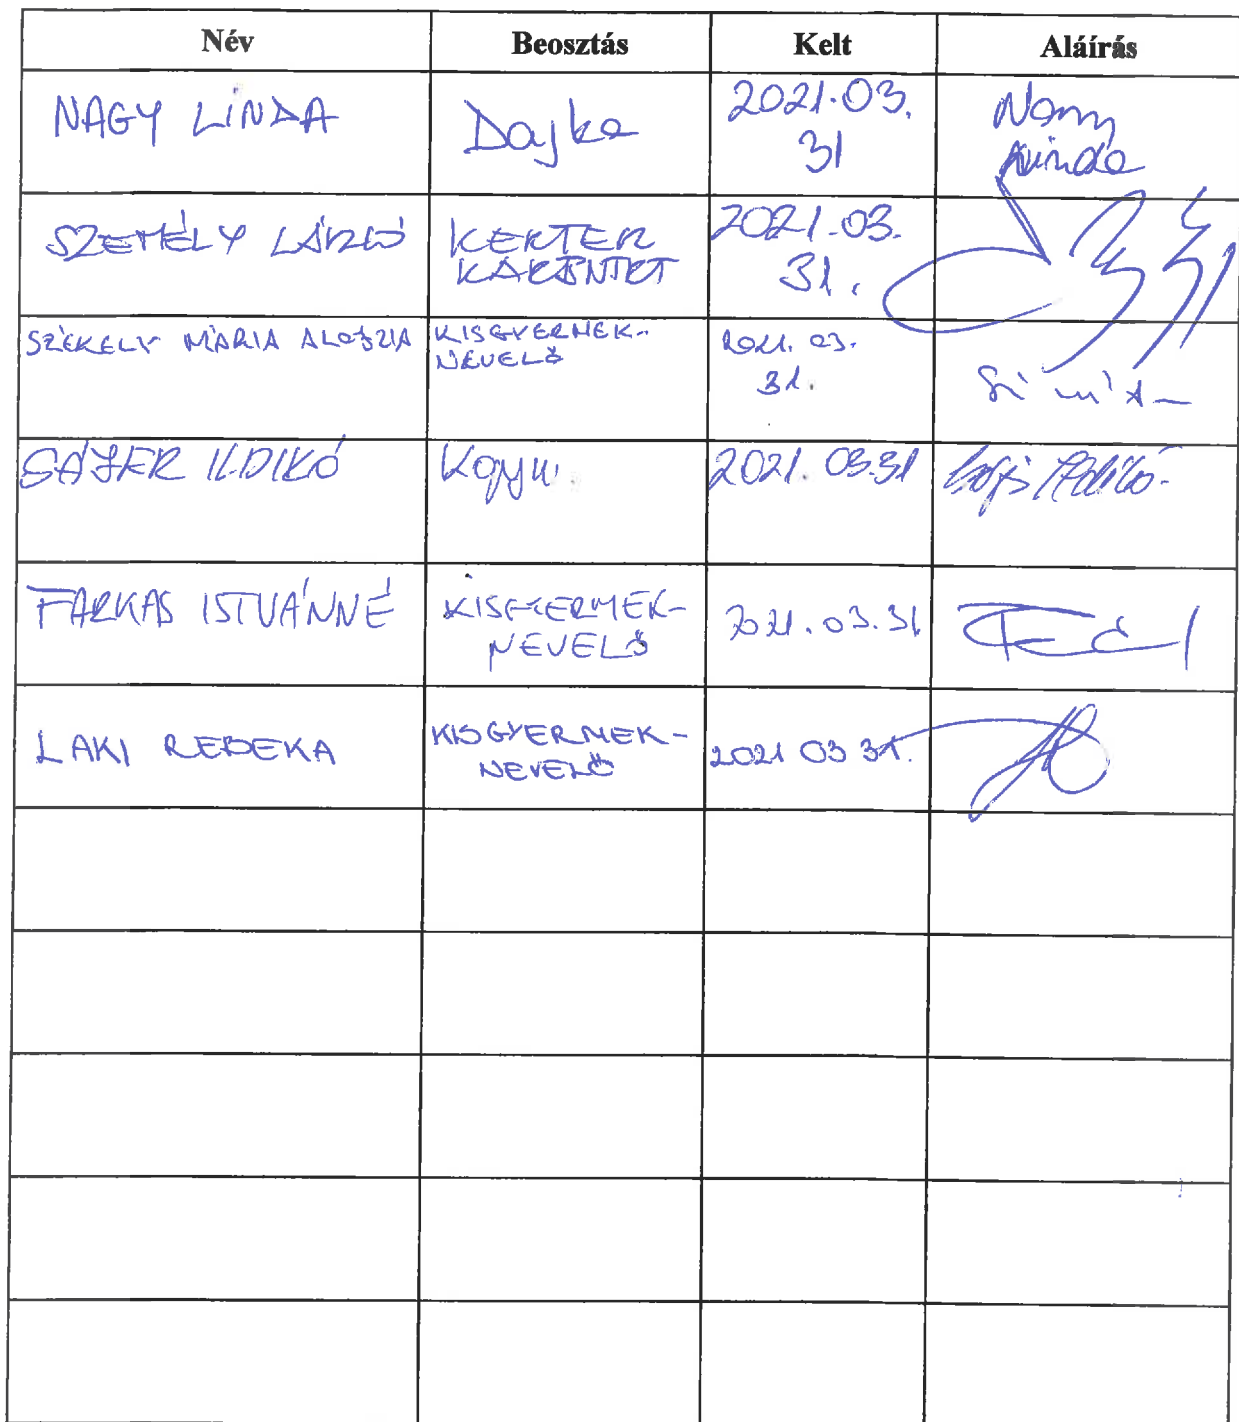 Név Beosztás Kelt Aláírás
NAGY LINDA Dajka 2021.03.
31
Nagy
Linda
SZEMÉLY LÁSZLÓ KERTÉSZ 2021.03.
31.
SZÉKELY MÁRIA ALOJZIA KISGYERMEK-
NEVELŐ 2021. 03.
31.
SÁJER ILDIKÓ Kgyn. 2021. 03.31 Ildikó
FARKAS ISTVÁNNÉ KISGYERMEK-
NEVELŐ 2021.03.31
LAKI REBEKA KISGYERMEK-
NEVELŐ 2021 03 31.